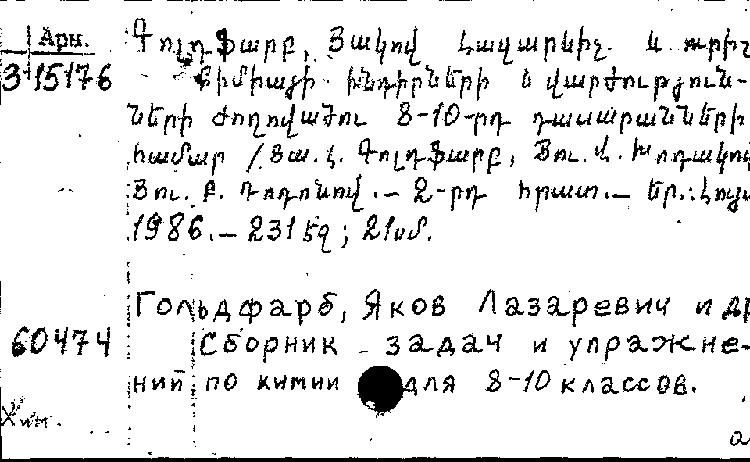 Арн.
Գոլդֆարբ, Յակով Լազարևիչ և ուրիշ
3-15176
Քիմիայի խնդիրների և վարժություն-
ների ժողովածու 8-10-րդ դասարանների
համար / Յա. Լ. Գոլդֆարբ, Յու. Վ. Խոդակով
Յու. Բ. Դոդոնով. — 2-րդ հրատ. — Եր.: Լույս
1986. — 231 էջ ; 21սմ.
Гольдфарб, Яков Лазаревич и др
60474
Сборник задач и упражне-
ний по химии для 8-10 классов.
Хим.